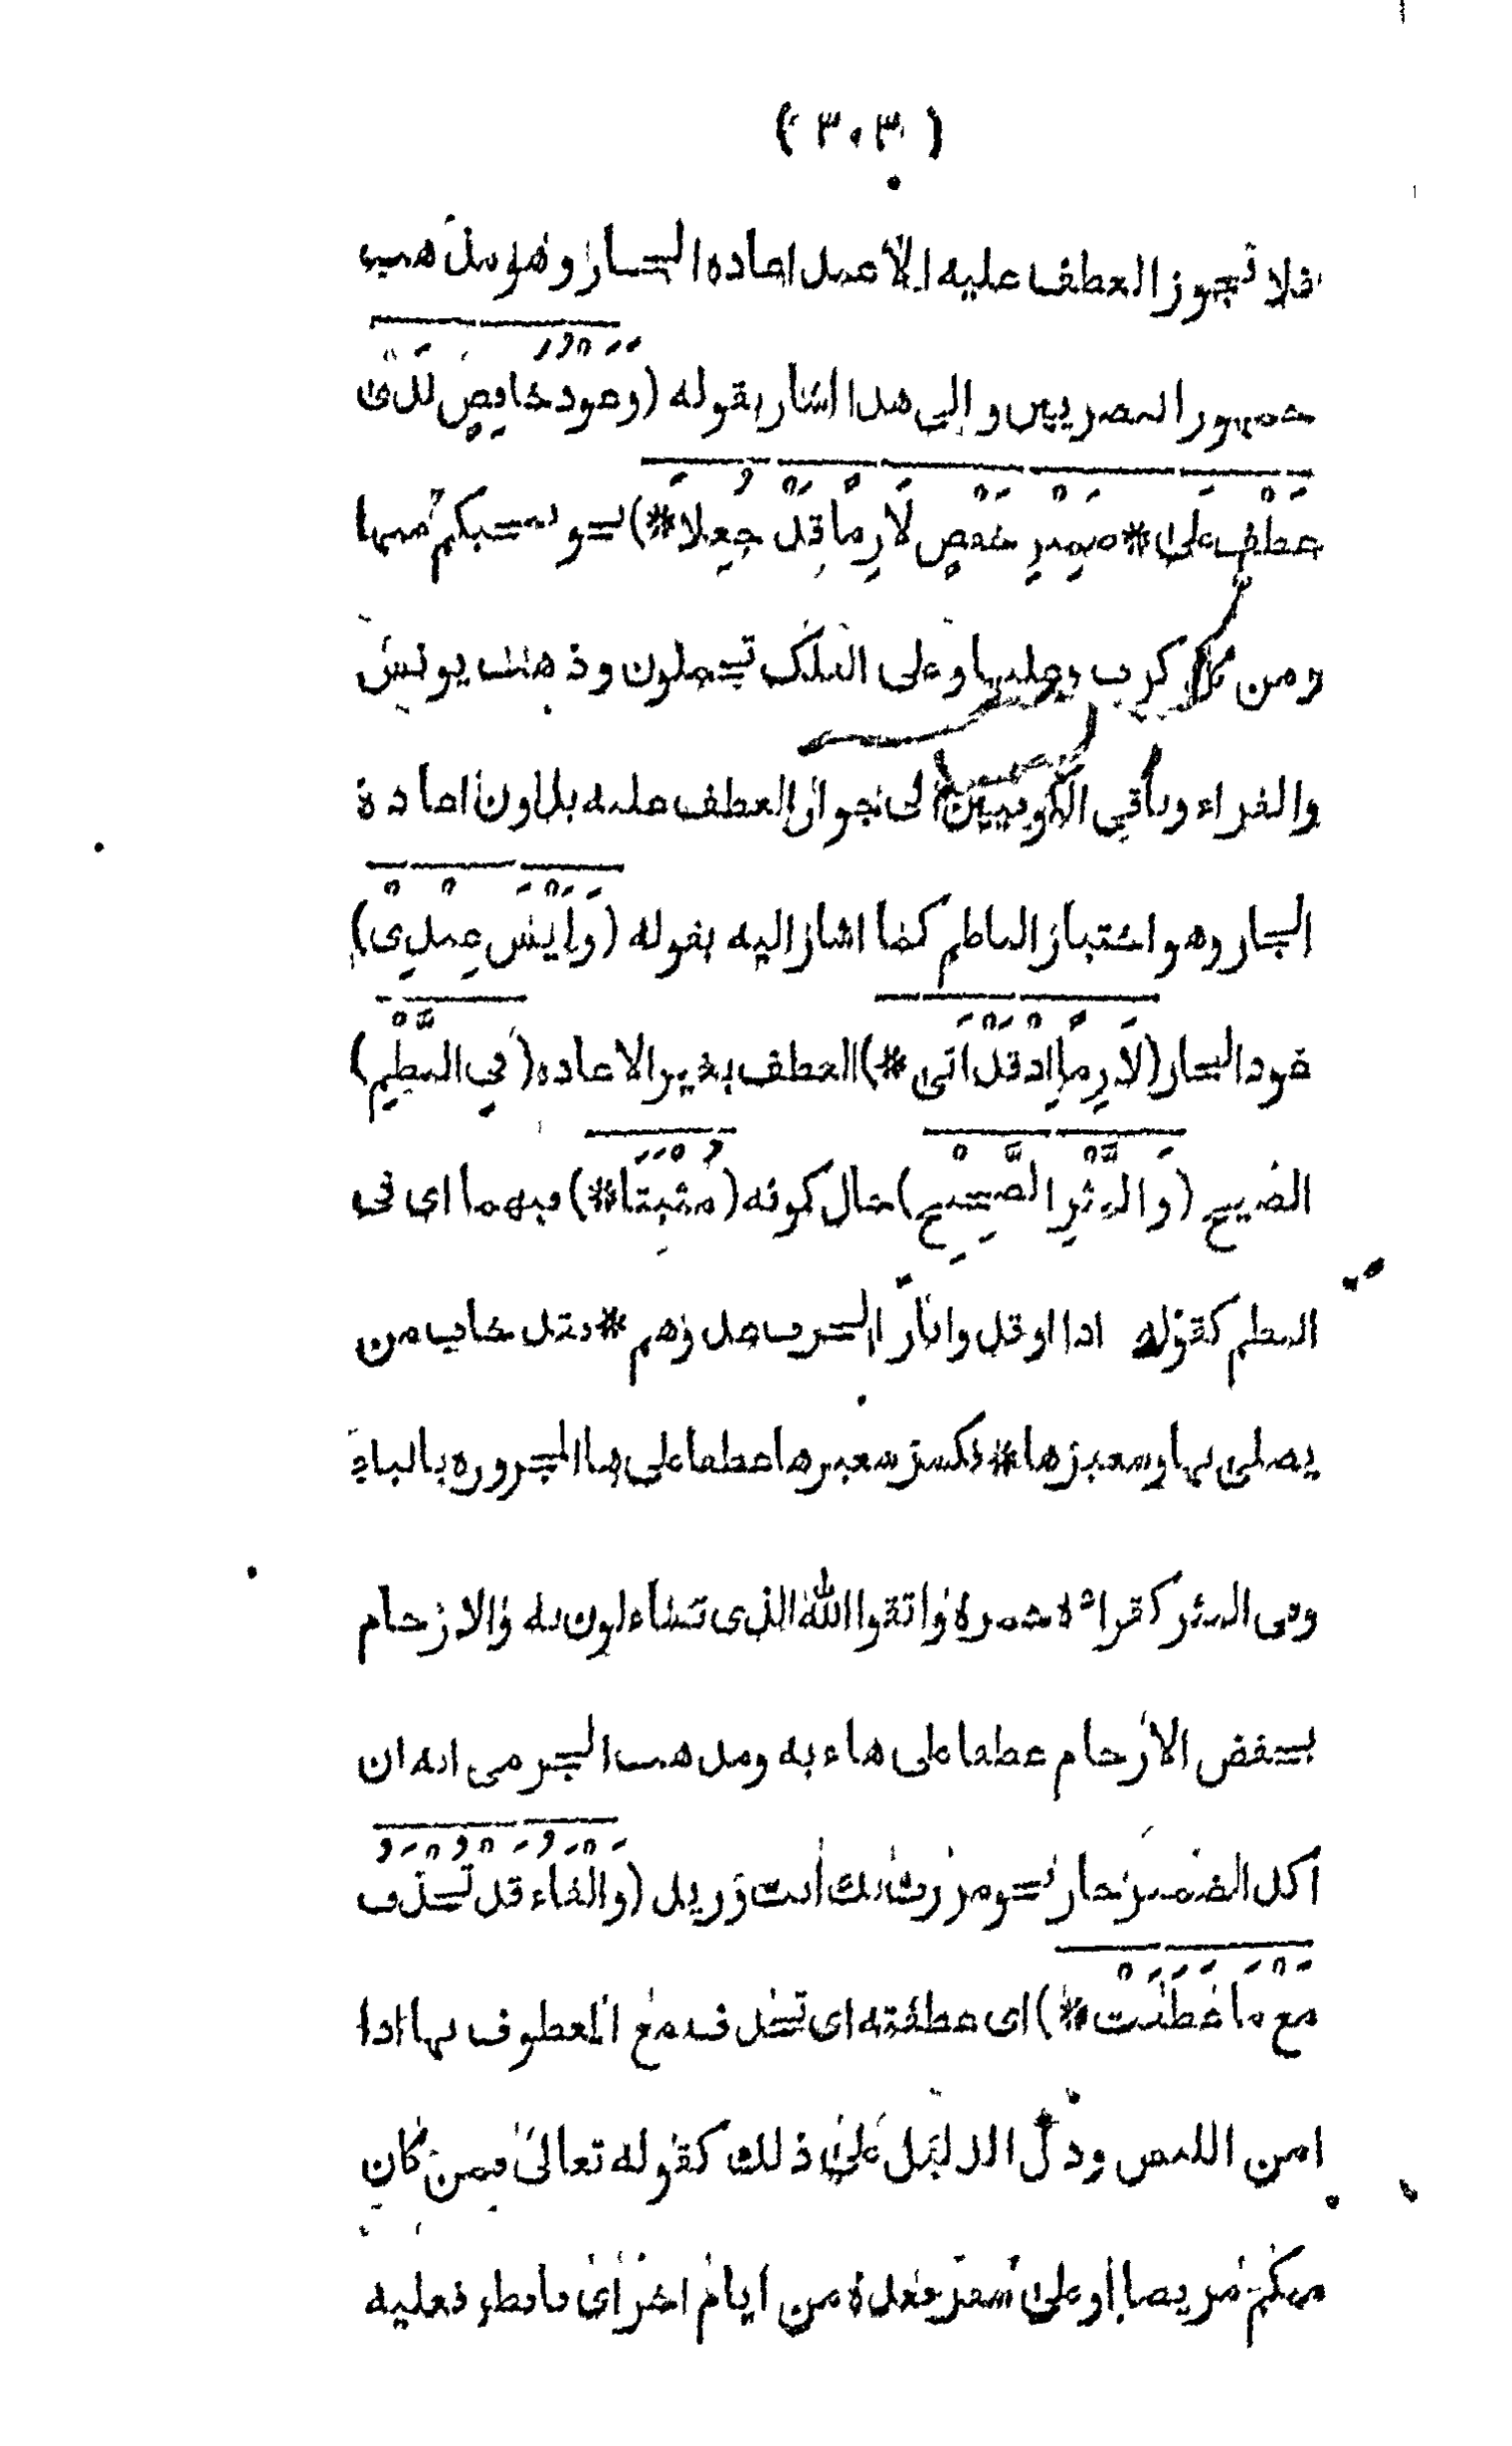 (٣٠٣)
فلا تجوز العطف عليه الا عند اعاده الجار وهو مذهب
جمهور البصريين والى هذا اشار بقوله (وَعَوْدُ خَافِضٍ لَدَىْ
عَطْفٍ عَلَىٰ * ضَمِيْرِ خَفْضٍ لَازِمًا قَدْ جُعِلَا *) نحو ننجيكم منها
ومن كل كرب وعليها وعلى الفلك تحملون وذهب يونس
والفراء وباقي الكوفيين الى نجواز العطف عليه بدون اعادة
الجار وهو اختيار الناظم كما اشار اليه بقوله (وَلَيْسَ عِنْدِىْ)
عود الجار (لَازِمًا اِذْ قَدْ اَتَى *) العطف بغير الاعاده (فِي النَّظْمِ)
الفصيح (وَالنَّثْرِ الصَّحِيْحِ) حال كونه (مُثْبَتَا *) فيهما اى فى
النظم كقوله اذا اوقدوا نار الحرب عدوهم * فقد خاب من
يصلى بها وسعيرها * بكسر سعيرها عطفا على ها المجروره بالباء
وفى النثر كقراءة حمزة واتقوا الله الذى تساءلون به والارحام
بخفض الارحام عطفا على هاء به ومذهب الجرمى انه ان
اكد الضمير جاز نحو مررت بك انت وزيد (وَالْفَاءُ قَدْ تُحْذَفُ
مَعْ مَا عَطَفَتْ *) اى عطفته اى تحذف مع المعطوف بها اذا
امن اللبس ودل الدليل على ذلك كقوله تعالى فمن كان
منكم مريضا او على سفر فعدة من ايام اخر اى فافطر فعليه